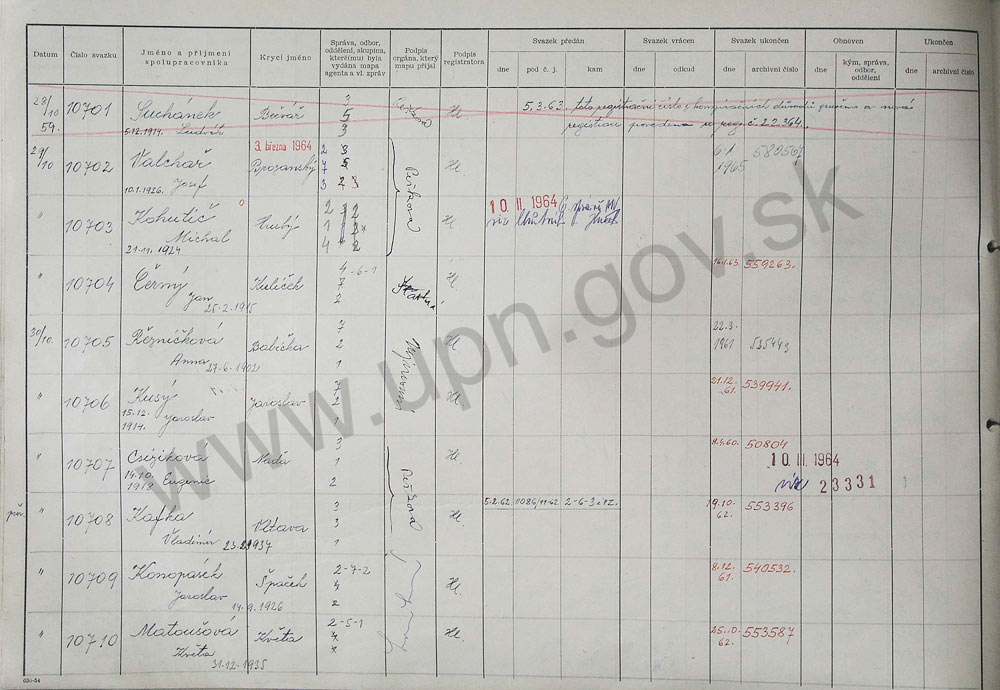 Datum
Číslo svazku
Jméno a příjmení
spolupracovníka
Krycí jméno
Správa, odbor,
oddělení, skupina,
které(mu) byla
vydána mapa
agenta a vl. zpráv
Podpis
orgána, který
mapu přijal
Podpis
registrátora
Svazek předán
dne
pod č. j.
kam
Svazek vrácen
dne
odkud
Svazek ukončen
dne
archivní číslo
Obnoven
dne
kým, správa,
odbor,
oddělení
Ukončen
dne
archivní číslo
28/10
54.
10701
Suchánek
5.12.1914. Ludvík
Bečvář
3
5
3
Hl.
5.3.63. toto registrační číslo z konspiračních důvodů zrušeno a nová
registrace provedena reg. č. 22.364.
29/10
10702
Valchař
10.1.1926. Josef
3. března 1964
Brozanský
2 3
7 5
3 2 3
Hl.
6.1.
1965
" 10703
Kohutič
Michal
21.11.1924
Hrubý
2 2
1 2
4 2
Hl
10. II. 1964
" 10704
Černý
Jan
25-2-1915
Kulíček
4-6-1
7
2
Hl.
16.1.63. 559263.
30/10.
10705
Řezníčková
Anna 27-6-1902
Babička
7
2
1
Hl
22.3.
1961 525443
" 10706
Kusý
15.12.
1914. Jaroslav
Jaroslav
7
2
1
Hl.
21.12.
61. 539941.
" 10707
Csizikova
14.10.
1918 Eugenie
Naďa
3
1
2
Hl
8.4.60. 50804
10. III. 1964
viz 23331
" 10708
Kafka
Vladimír 23.2.1937
Vltava
3
3
1
Hl.
5.2.62.
0086/
2-6-3
19.10.
62. 553396
" 10709
Konopásek
Jaroslav
14.9.1926
Špaček
2-7-2
4
2
Hl.
8.12.
61. 540532.
" 10710
Matoušová
Květa
31.12.1935
Květa
2-5-1
4
Hl.
25.10.
62. 553587
630-54
www.upn.gov.sk